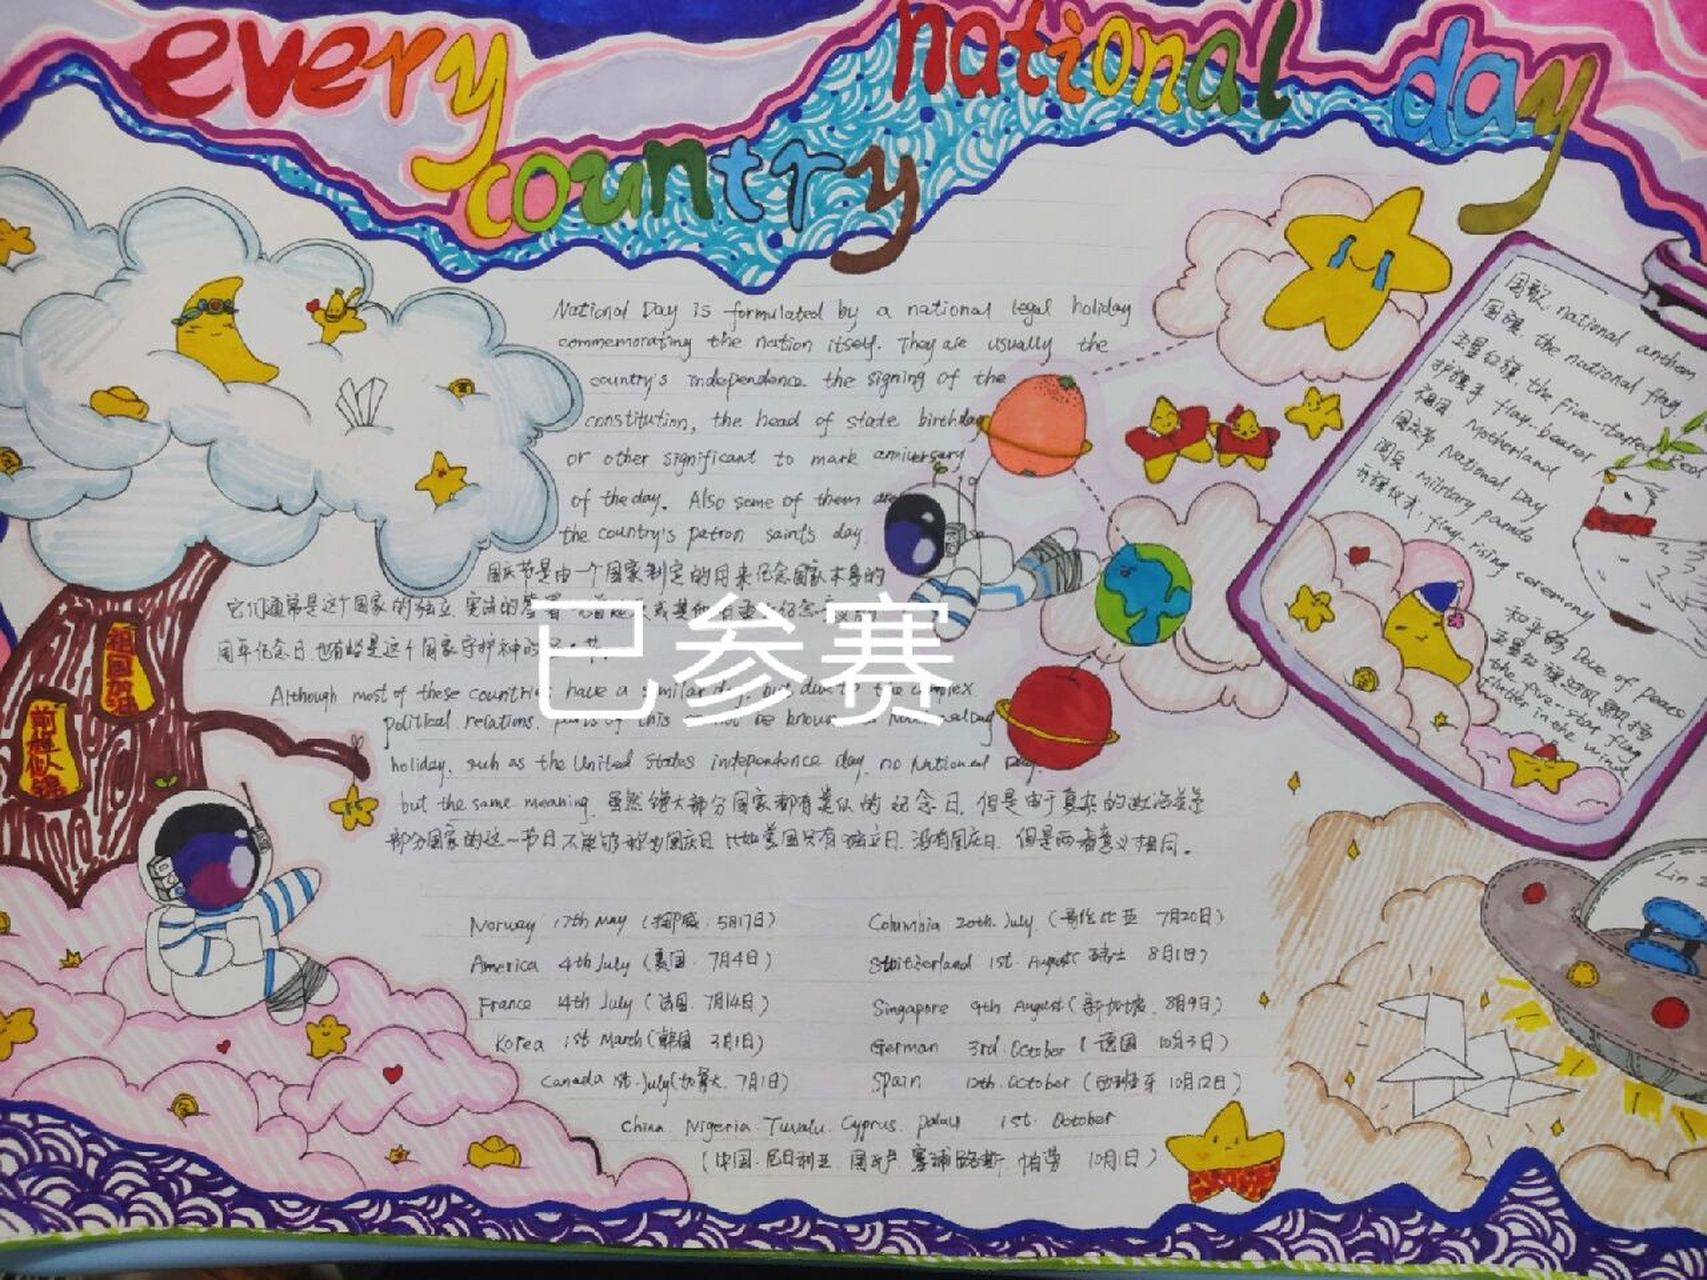 every national day
country
National Day is formulated by a national legal holiday
commemorating the nation itself. They are usually the
country's independence. the signing of the
constitution, the head of state birthday
or other significant to mark anniversary
of the day. Also some of them are
the country's patron saint's day.
国庆节是由一个国家制定的用来纪念国家本身的
它们通常是这个国家的独立、宪法的签署
周年纪念日.也有些是这个国家守护神的
已参赛
Although most of these countries have a similar day, but due to the complex
political relations. of this not be
holiday, such as the United States independence day. no National Day.
but the same meaning. 虽然绝大部分国家都有类似的纪念日.但是由于复杂的政治关系
部分国家的这一节日不能够称为国庆日.比如美国只有独立日.没有国庆日.但是两者意义相同。
Norway 17th May (挪威.5月17日)
America 4th July (美国.7月4日)
France 14th July (法国.7月14日)
Korea 1st March (韩国 3月1日)
Canada 1st.July (加拿大.7月1日)
Columbia 20th.July. (哥伦比亚 7月20日)
1st. August 8月1日)
Singapore 9th August (新加坡.8月9日)
German 3rd.October (德国 10月3日)
Spain 12th.October (西班牙 10月12日)
China Nigeria.Tuvalu.Cyprus.Palau 1st.October
(中国.尼日利亚.图瓦卢.塞浦路斯.帕劳 10月1日)
祖国万岁
前程似锦
国歌: national anthem
国旗. the national flag
五星红旗. the five-starred Red
护旗手 flag-bearer
祖国 Motherland
国庆节 National Day
阅兵. military parade
升旗仪式. flag-rising ceremony
和平鸽 Dove of peace
五星红旗迎风飘扬
the five-star flag
flutter in the wind
Lin